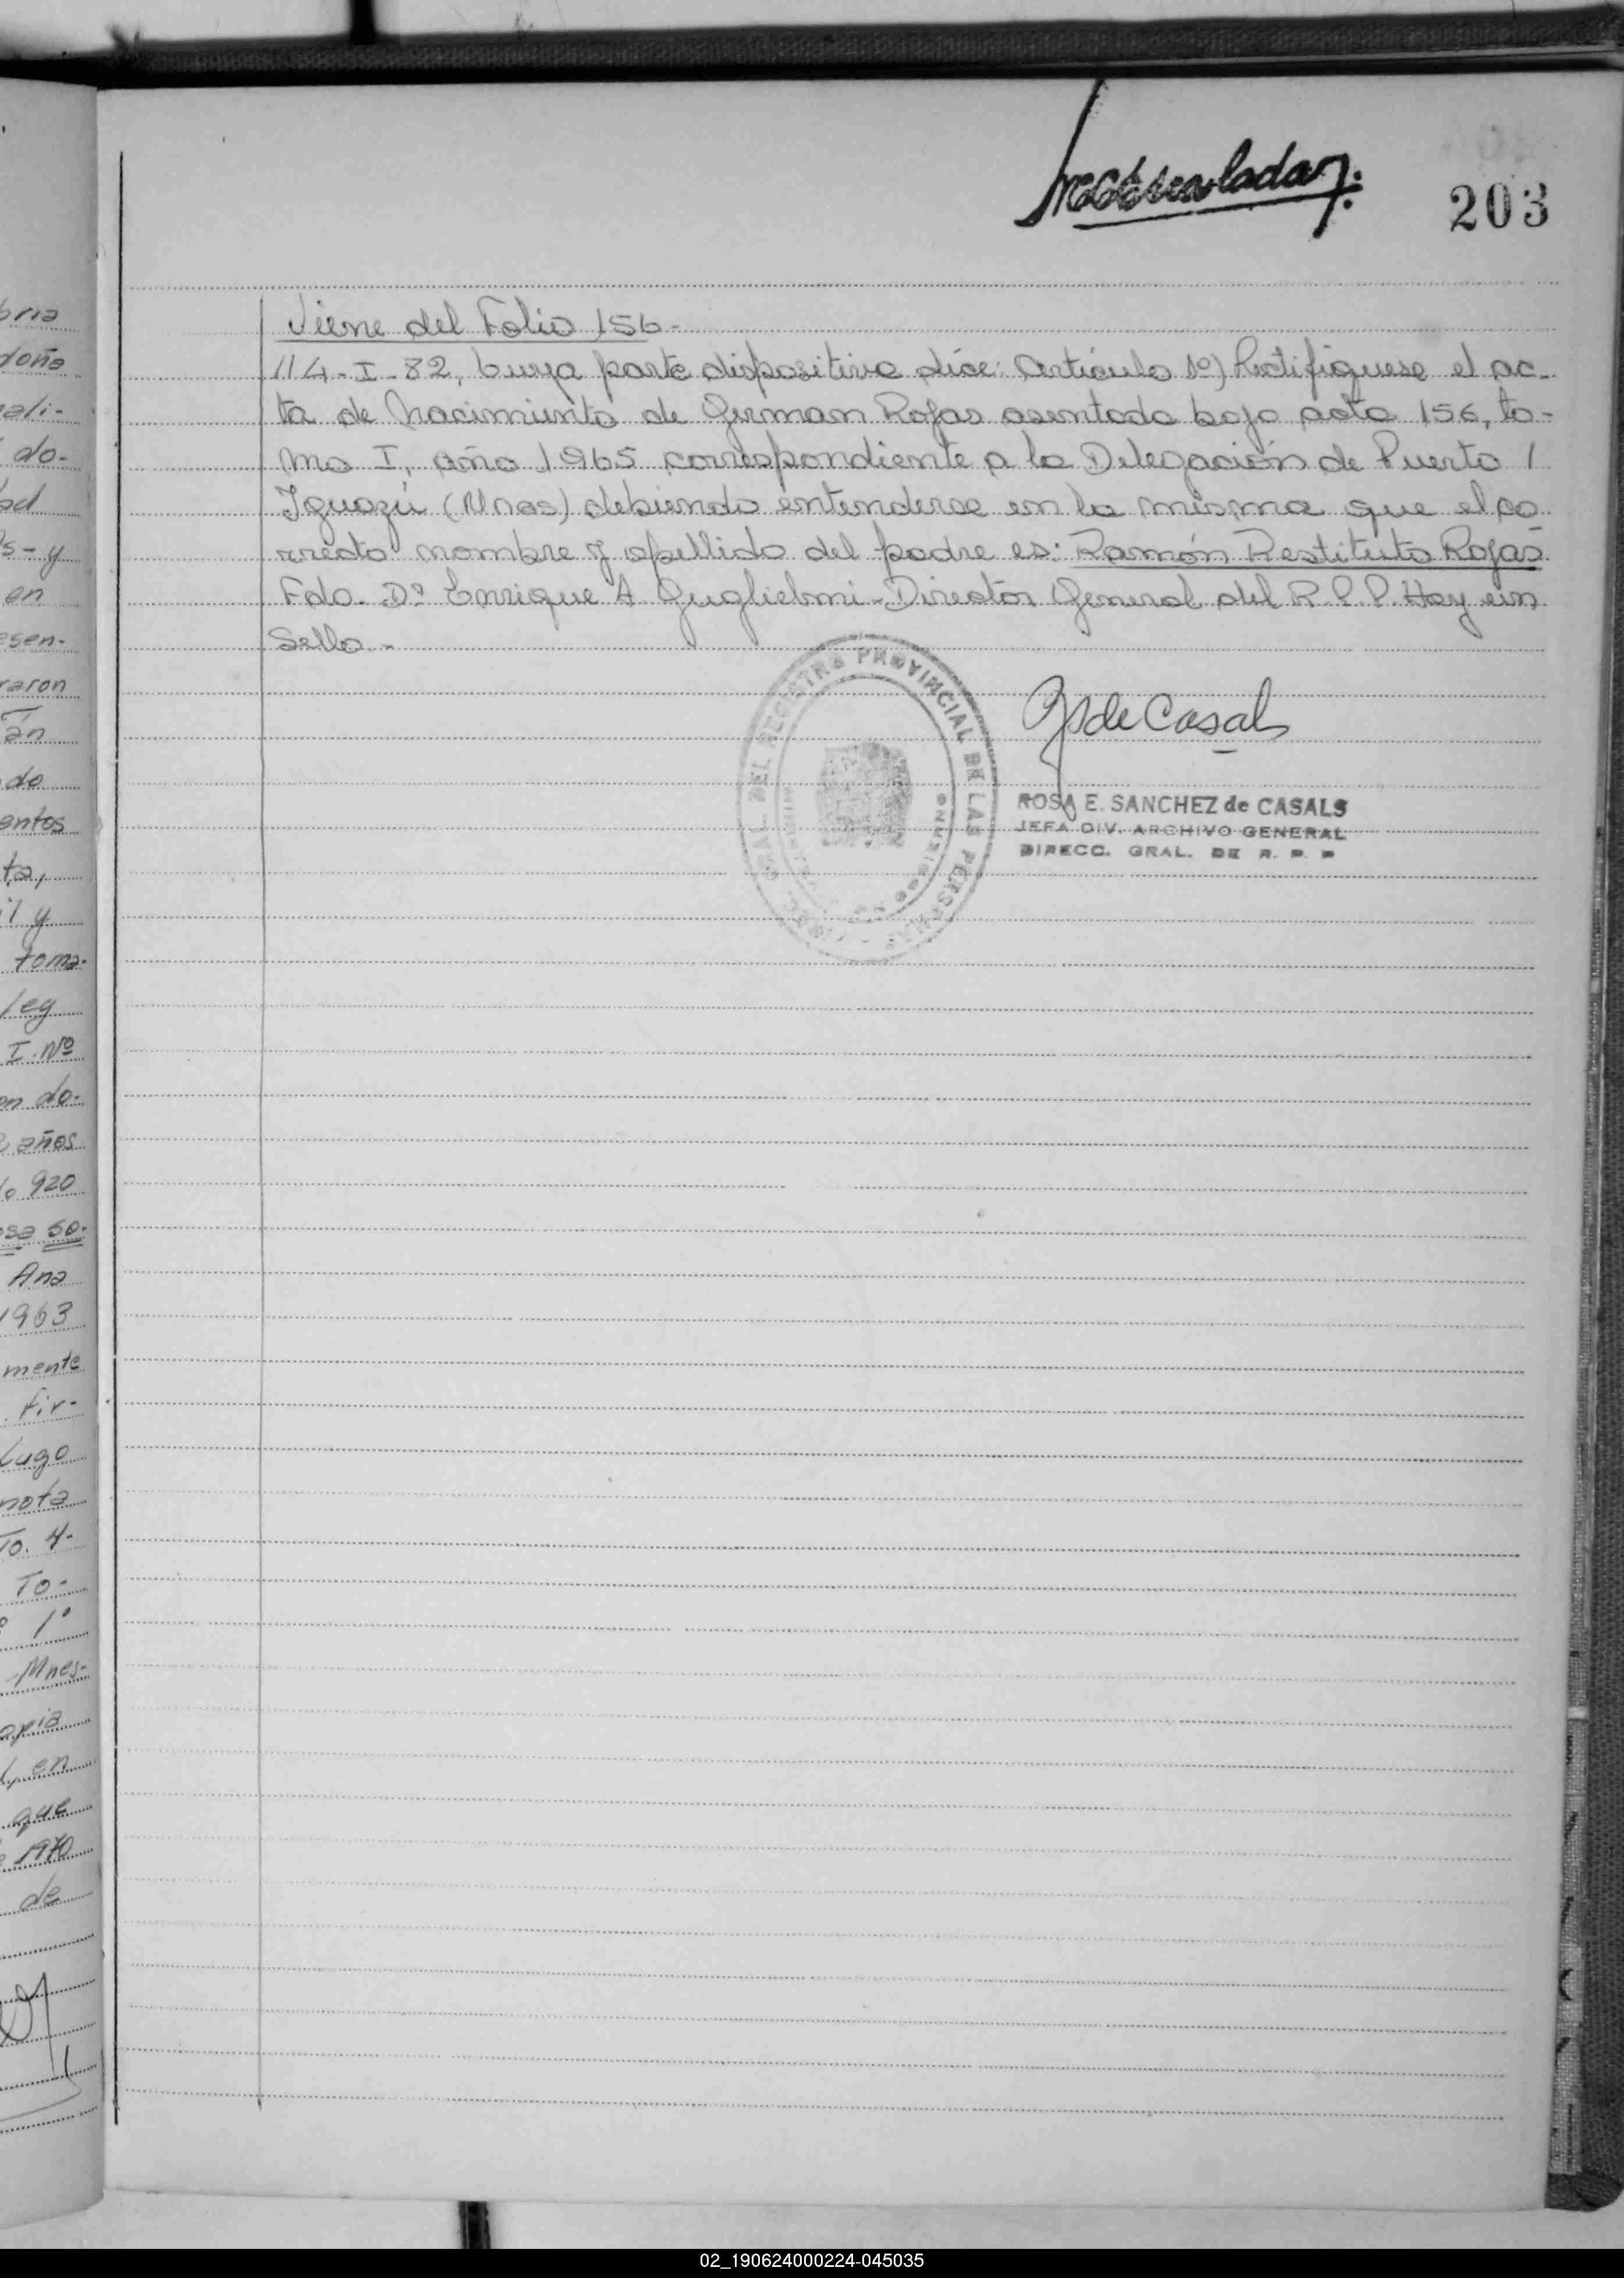 203
Viene del Folio 156-
114-I-82, cuya parte dispositiva dice: Artículo 1º) Rectifíquese el ac-
ta de Nacimiento de German Rojas asentada bajo acta 156, to-
mo I, año 1965 correspondiente a la Delegación de Puerto /
Iguazú (Mnes) debiendo entenderse en la misma que el co-
rrecto nombre y apellido del padre es: Ramón Restituto Rojas
Fdo. Dº Enrique A Guglielmi-Director General del R.P.P. Hay un
Sello.-
GRAL. DEL REGISTRO PROVINCIAL DE LAS PERSONAS
de Casals
ROSA E. SANCHEZ de CASALS
JEFA DIV. ARCHIVO GENERAL
DIRECC. GRAL. DE R. P. P
bria
doña
ali-
do-
s-y
en
esen-
raron
án
do
entos
ta,
il y
toma-
leg
I. Nº
en do-
años
lo 920
osa so-
Ana
1963
mente
fir-
Lugo
nota
To. 4-
To-
1º
Mnes-
opia
en
que
1970
de
02_190624000224-045035